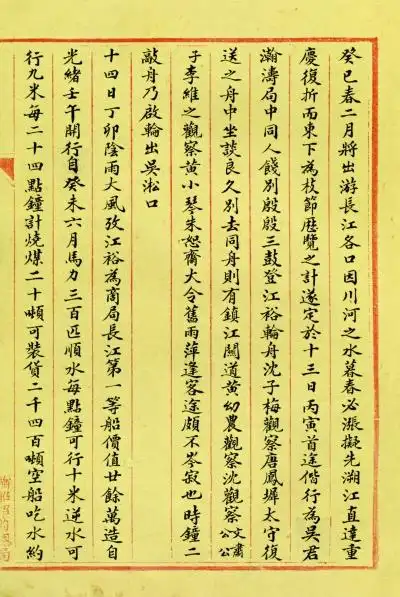 癸巳春二月將出游長江各口因川河之水暮春必漲擬先溯江直達重
慶復折而東下為枝節歷覽之計遂定於十三日丙寅首途偕行為吳君
瀚濤局中同人餞別殷殷三鼓登江裕輪舟沈子梅觀察唐鳳墀太守復
送之舟中坐談良久別去同舟則有鎮江關道黃幼農觀察沈觀察文肅公公
子李維之觀察黃小琴朱恕齋大令舊雨萍逢客途頗不岑寂也時鐘二
敲舟乃啟輪出吳淞口
十四日丁卯陰雨大風攷江裕為商局長江第一等船價值廿餘萬造自
光緒壬午開行自癸未六月馬力三百匹順水每點鐘可行十米逆水可
行九米每二十四點鐘計燒煤二十噸可裝貨二千四百噸空船吃水約